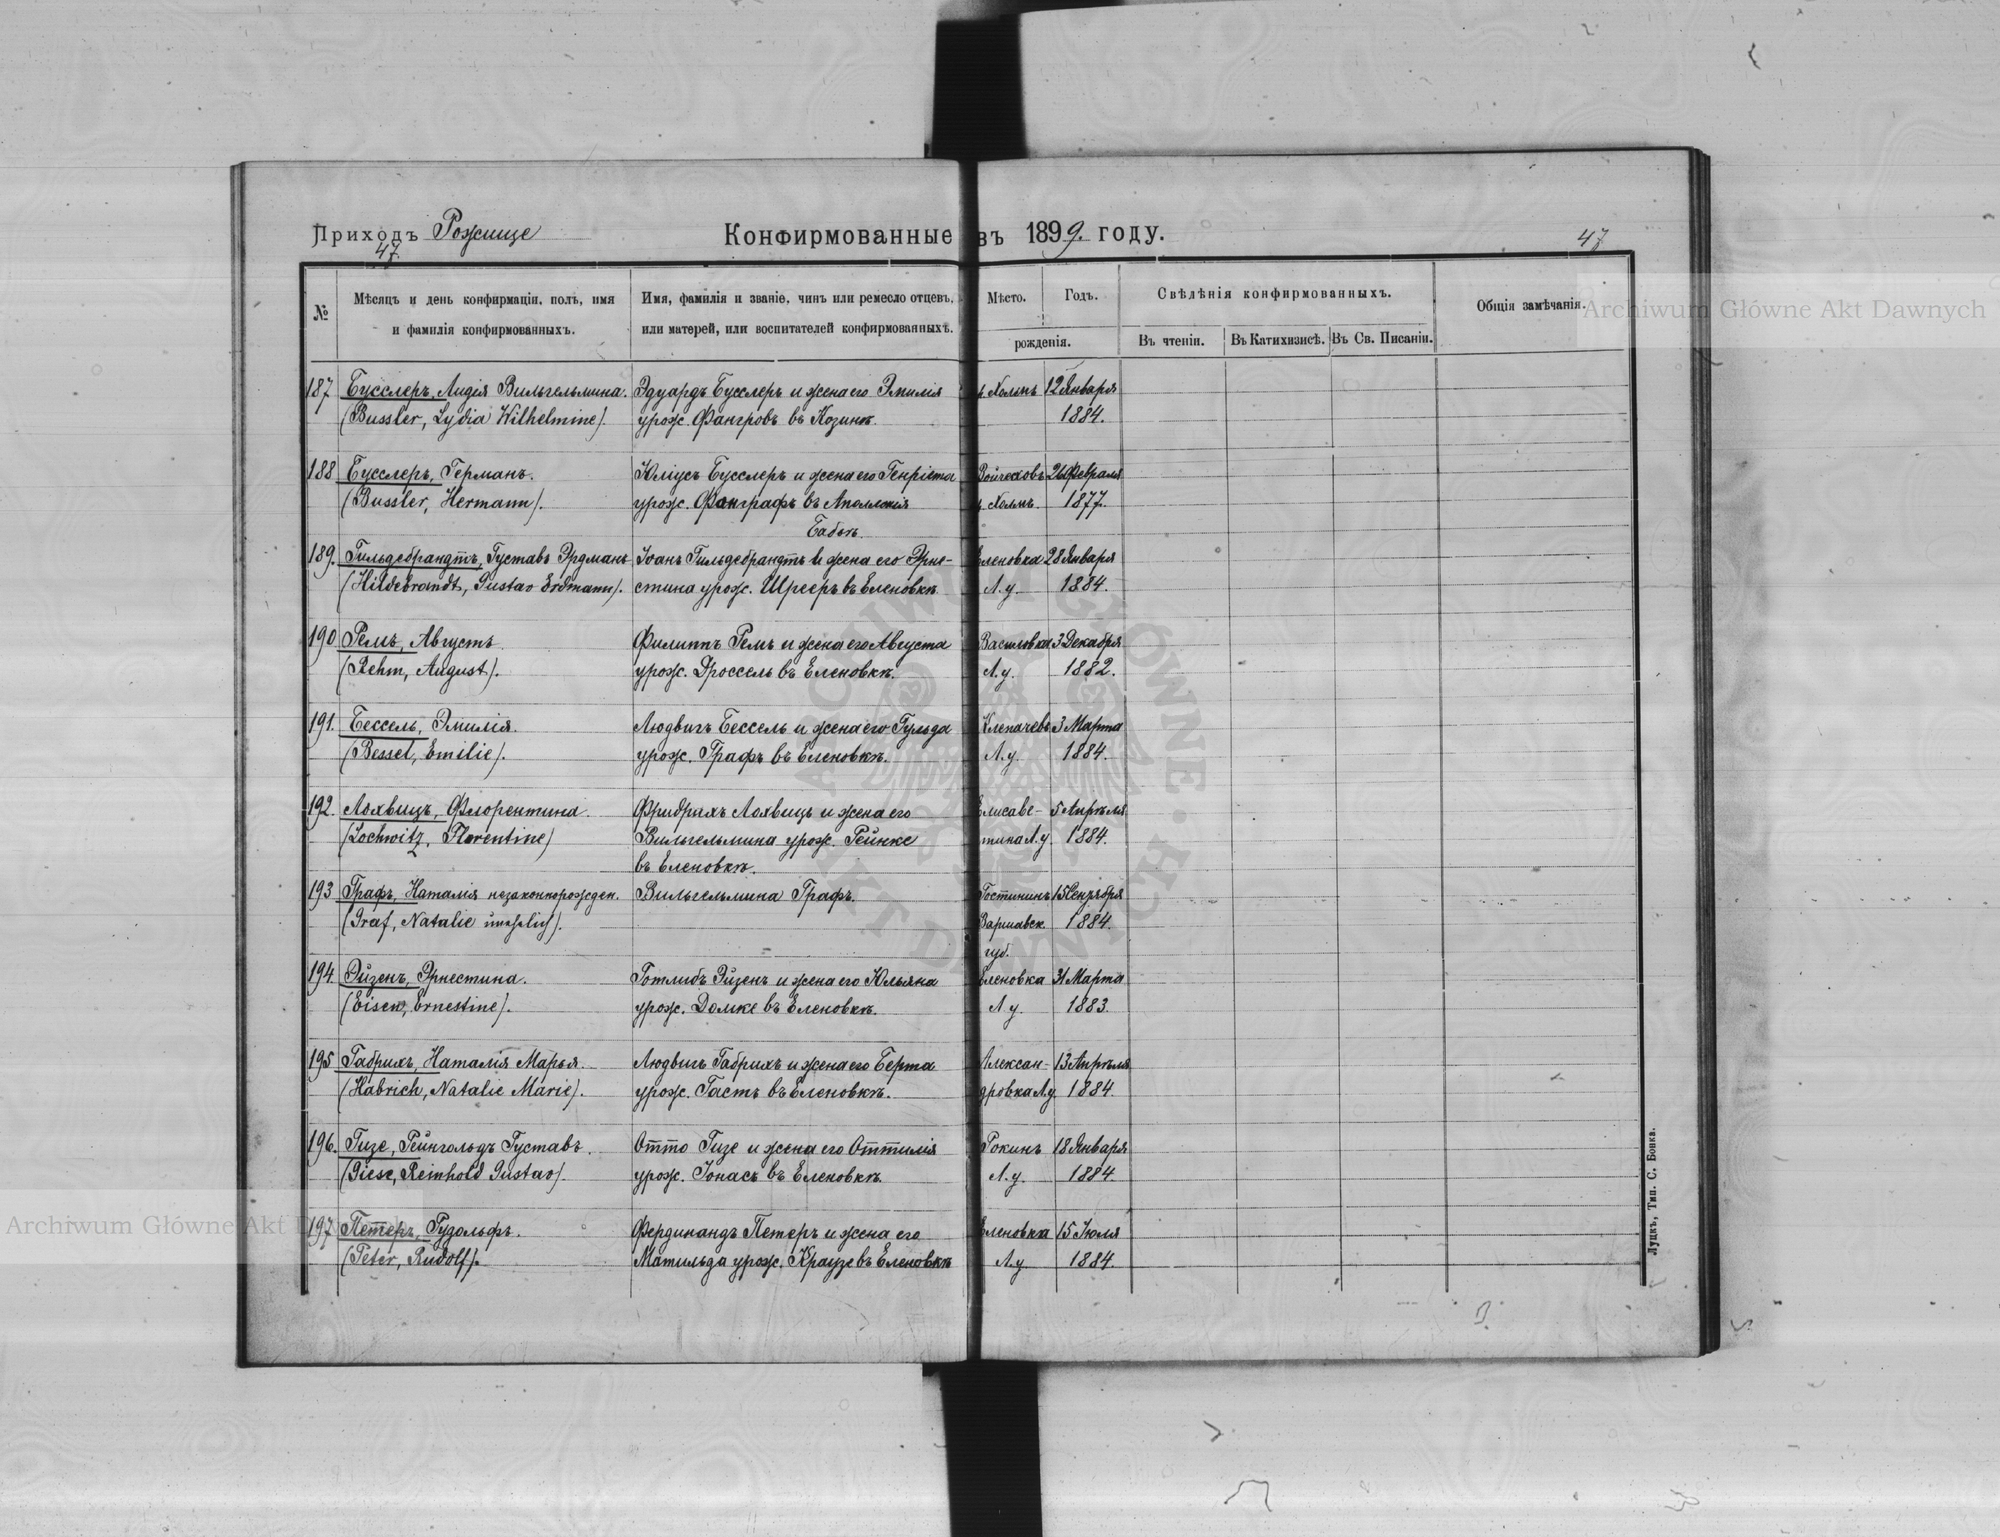 Приходъ Рожище
Конфирмованные въ 1899. году.
47
47
№
Мѣсяцъ и день конфирмаціи, полъ, имя
и фамилія конфирмованныхъ.
Имя, фамилія и званіе, чинъ или ремесло отцевъ,
или матерей, или воспитателей конфирмованныхъ.
Мѣсто.
Годъ.
рожденія.
Свѣдѣнія конфирмованныхъ.
Въ чтеніи.
Въ Катихизисѣ.
Въ Св. Писаніи.
Общія замѣчанія.
187 Бусслеръ, Лидія Вильгельмина. Эдуардъ Бусслеръ и жена его Эмилія Холмъ 12 Января
(Bussler, Lydia Wilhelmine). урож. Фангровъ въ Козинѣ. 1884.
188 Бусслеръ, Германъ. Юліусъ Бусслеръ и жена его Генріета Войчеховъ 26 Февраля
(Bussler, Hermann). урож. Фанграфъ въ Аполлонія Холмъ. 1877.
Бабы.
189. Гильдебрандтъ, Густавъ Эрдманъ Іоанъ Гильдебрандтъ и жена его Эрне- Еленовка 28 Января
(Hildebrandt, Gustav Erdmann). стина урож. Шрееръ въ Еленовкѣ. Л.у. 1884.
190 Ремъ, Августъ Филиппъ Ремъ и жена его Августа Василовка 3 Декабря
(Rehm, August). урож. Дроссель въ Еленовкѣ. Л.у. 1882.
191. Бессель, Эмилія. Людвигъ Бессель и жена его Гульда Клепачевъ 3 Марта
(Bessel, Emilie). урож. Графъ въ Еленовкѣ. Л.у. 1884.
192. Лохвицъ, Флорентина. Фридрихъ Лохвицъ и жена его Елисаве- 5 Апрѣля
(Lochwitz, Florentine) Вильгельмина урож. Рейнке тина Л.у. 1884.
въ Еленовкѣ.
193 Графъ, Наталія незаконнорожден. Вильгельмина Графъ. Гостининъ 15 Сентября
(Graf, Natalie unehelich). Варшавск. 1884.
губ.
194. Эйзенъ, Эрнестина. Готлибъ Эйзенъ и жена его Юльяна Еленовка 31 Марта
(Eisen, Ernestine). урож. Домке въ Еленовкѣ. Л.у. 1883.
195 Габрихъ, Наталія Марья. Людвигъ Габрихъ и жена его Берта Алексан- 13 Апрѣля
(Habrich, Natalie Marie). урож. Гастъ въ Еленовкѣ. дровка Л.у. 1884.
196. Гизе, Рейнгольдъ Густавъ. Отто Гизе и жена его Оттилія Рокинъ 18 Января
(Giese, Reinhold Gustav). урож. Іонасъ въ Еленовкѣ. Л.у. 1884.
197 Петеръ, Рудольфъ. Фердинандъ Петеръ и жена его Еленовка 15 Іюля
(Peter, Rudolf). Матильда урож. Краузе въ Еленовкѣ Л.у. 1884.
Луцкъ, Тип. С. Бонка.
Archiwum Główne Akt Dawnych
Archiwum Główne Akt Dawnych